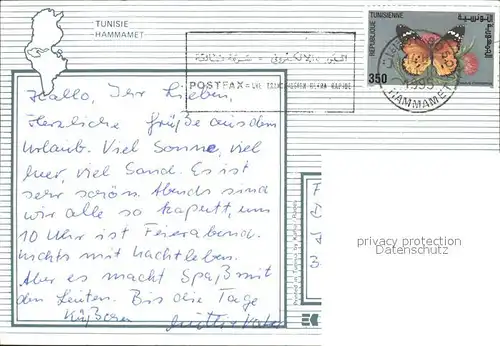 TUNISIE
- HAMMAMET
REPUBLIQUE TUNISIENNE
350
1995
HAMMAMET
POSTFAX = UNE TRANSMISSION ULTRA RAPIDE
Hallo, Ihr Lieben,
Herzliche Grüße aus dem
Urlaub. Viel Sonne, viel
Meer, viel Sand. Es ist
sehr schön. Abends sind
wir alle so kaputt, um
10 Uhr ist Feierabend.
nichts mit Nachtleben.
Aber es macht Spaß mit
den Leuten. Bis die Tage
Küßchen
privacy protection
Datenschutz